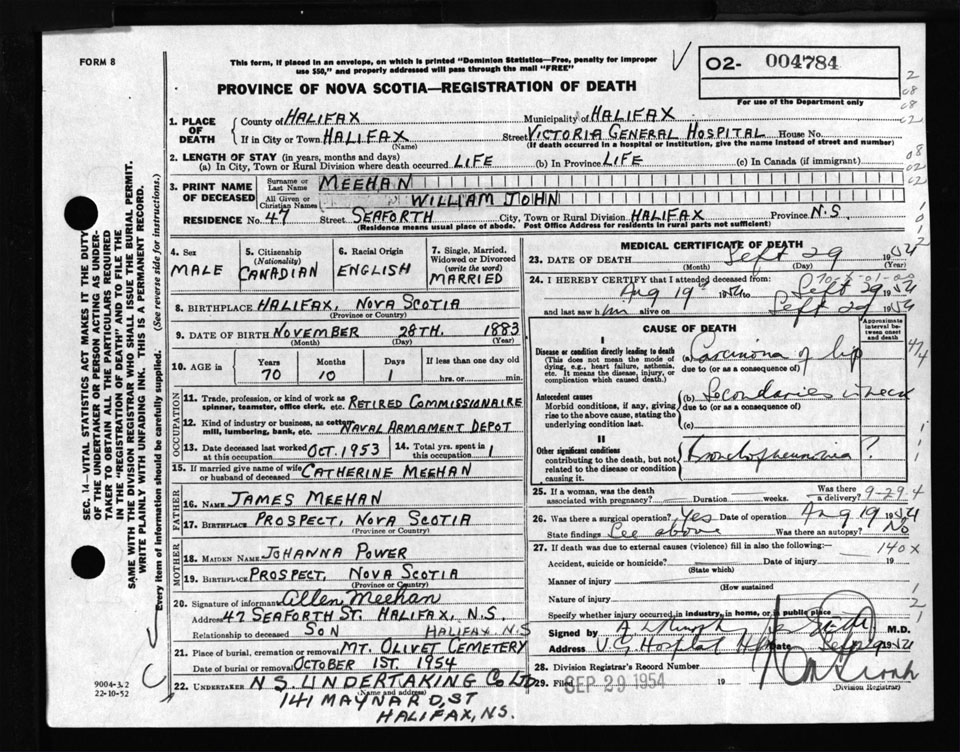 FORM 8
This form, if placed in an envelope, on which is printed "Dominion Statistics—Free, penalty for improper
use $50," and properly addressed will pass through the mail "FREE"
O2- 004784
For use of the Department only
PROVINCE OF NOVA SCOTIA—REGISTRATION OF DEATH
1. PLACE OF DEATH
County of HALIFAX Municipality of HALIFAX
If in City or Town HALIFAX Street VICTORIA GENERAL HOSPITAL House No.
(Name) (If death occurred in a hospital or institution, give the name instead of street and number)
2. LENGTH OF STAY (in years, months and days)
(a) In City, Town or Rural Division where death occurred LIFE (b) In Province LIFE (c) In Canada (if immigrant)
3. PRINT NAME OF DECEASED
Surname or Last Name MEEHAN
All Given or Christian Names WILLIAM JOHN
RESIDENCE No. 47 Street SEAFORTH City, Town or Rural Division HALIFAX Province N.S.
(Residence means usual place of abode. Post Office Address for residents in rural parts not sufficient)
4. Sex MALE
5. Citizenship (Nationality) CANADIAN
6. Racial Origin ENGLISH
7. Single, Married, Widowed or Divorced (write the word) MARRIED
8. BIRTHPLACE HALIFAX, NOVA SCOTIA
(Province or Country)
9. DATE OF BIRTH NOVEMBER 28TH. 1883
(Month) (Day) (Year)
10. AGE in Years 70 Months 10 Days 1 If less than one day old hrs. or min.
OCCUPATION
11. Trade, profession, or kind of work as spinner, teamster, office clerk, etc. RETIRED COMMISSIONAIRE
12. Kind of industry or business, as cotton mill, lumbering, bank, etc. NAVAL ARMAMENT DEPOT
13. Date deceased last worked at this occupation OCT. 1953 14. Total yrs. spent in this occupation 1
15. If married give name of wife or husband of deceased CATHERINE MEEHAN
FATHER
16. Name JAMES MEEHAN
17. Birthplace PROSPECT, NOVA SCOTIA
(Province or Country)
MOTHER
18. MAIDEN NAME JOHANNA POWER
19. Birthplace PROSPECT, NOVA SCOTIA
(Province or Country)
20. Signature of informant Allen Meehan
Address 47 SEAFORTH ST. HALIFAX, N.S.
Relationship to deceased SON HALIFAX. N.S
21. Place of burial, cremation or removal MT. OLIVET CEMETERY
Date of burial or removal OCTOBER 1ST. 1954
22. UNDERTAKER N S. UNDERTAKING CO LTD
(Name and address)
141 MAYNARD, ST
HALIFAX, N.S.
MEDICAL CERTIFICATE OF DEATH
23. DATE OF DEATH Sept 29 1954
(Month) (Day) (Year)
24. I HEREBY CERTIFY that I attended deceased from:
Aug 19 1954 to Sept 29 1954
and last saw him alive on Sept 29 1954
CAUSE OF DEATH
Approximate interval between onset and death
I
Disease or condition directly leading to death
(This does not mean the mode of dying, e.g., heart failure, asthenia, etc. It means the disease, injury, or complication which caused death.)
(a) Carcinoma of lip
due to (or as a consequence of)
Antecedent causes
Morbid conditions, if any, giving rise to the above cause, stating the underlying condition last.
(b) Secondaries in neck
due to (or as a consequence of)
(c)
II
Other significant conditions
contributing to the death, but not related to the disease or condition causing it.
Bronchopneumonia ?
25. If a woman, was the death associated with pregnancy? Duration weeks. Was there a delivery? 9-29 4
26. Was there a surgical operation? Yes Date of operation Aug 19 1954
State findings See above Was there an autopsy? No
27. If death was due to external causes (violence) fill in also the following:— 140x
Accident, suicide or homicide? Date of injury 19
(State which)
Manner of injury
(How sustained)
Nature of injury
Specify whether injury occurred in industry, in home, or in public place
Signed by M.D.
Address V.G. Hospital Hfx Date Sept 29 1954
28. Division Registrar's Record Number
29. Filed SEP 29 1954 19
(Division Registrar)
SEC. 14—VITAL STATISTICS ACT MAKES IT THE DUTY
OF THE UNDERTAKER OR PERSON ACTING AS UNDER-
TAKER TO OBTAIN ALL THE PARTICULARS REQUIRED
IN THE "REGISTRATION OF DEATH" AND TO FILE THE
SAME WITH THE DIVISION REGISTRAR WHO SHALL ISSUE THE BURIAL PERMIT.
WRITE PLAINLY WITH UNFADING INK. THIS IS A PERMANENT RECORD.
Every item of information should be carefully supplied. (See reverse side for instructions.)
9004-3.2
22-10-52